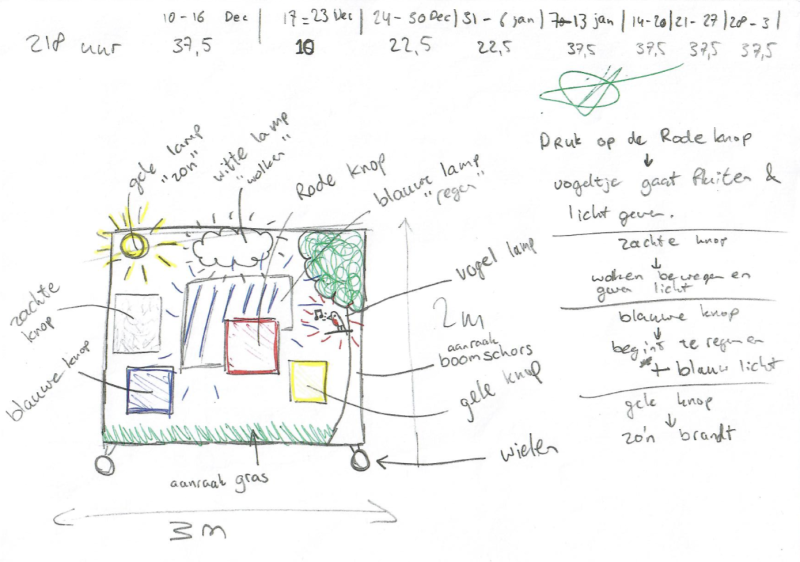 10 - 16 Dec | 17 = 23 Dec | 24 - 30 Dec | 31 - 6 jan | 7 - 13 jan | 14 - 20 | 21 - 27 | 28 - 3 |
218 uur 37,5 10 22,5 22,5 37,5 37,5 37,5 37,5
gele lamp
"zon"
witte lamp
"wolken"
Rode knop
blauwe lamp
"regen"
vogel lamp
zachte
knop
2m
aanraak
boomschors
blauwe knop
gele knop
wielen
aanraak gras
3m
Druk op de Rode knop
↓
vogeltje gaat fluiten &
licht geven.
zachte knop
↓
wolken bewegen en
geven licht
blauwe knop
↓
begint te regenen
+ blauw licht
gele knop
↓
zo'n brandt